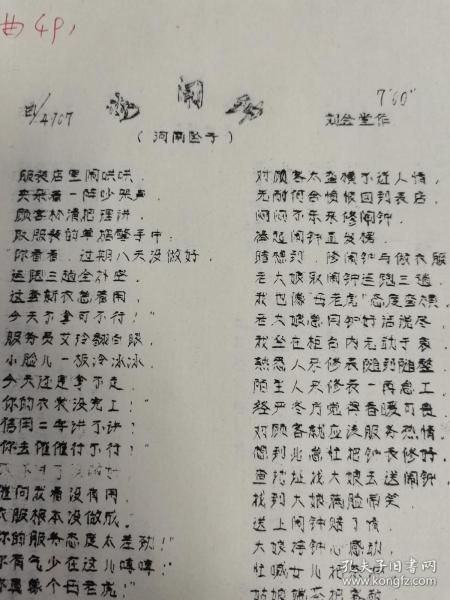 曲491
曲/4707
闹
7'60"
(河南坠子)
刘会堂作
服装店里闹哄哄,
夹杂着一阵吵架声,
顾客
取服装的单据擎手中:
"你看看,过期八天没做好,
连跑三趟全扑空,
这套新衣急着用,
今天不拿可不行!"
服务员
小脸儿一板冷冰冰,
今天还是拿不走,
你的衣裳没完工!"
信用二字讲不讲?
你去催催行不行?"
催问
衣服根本没做成,
你的服务态度太差劲!"
你有气少在这儿哼哼
你真象个母老虎!"
对顾客太蛮横不近人情,
无耐何含愤恢回到表店,
闷闷不乐来修闹钟,
拿起闹钟正发愣,
猜想到,修闹钟与做衣服
老大娘取闹钟连跑三趟,
我也像"母老虎"态度蛮横,
老大娘急用钟好话说尽,
我坐在柜台内无动于衷,
熟悉人来修表随到随整,
陌生人来修表一再怠工,
经严冬方觉得春暖可贵,
对顾客就应该服务热情,
想到此急忙把钟表修好,
查地址找大娘去送闹钟,
找到大娘满脸带笑,
送上闹钟赔了情,
大娘接钟心感动,
忙喊女儿把
姑娘端茶把客敬
孔夫子旧书网